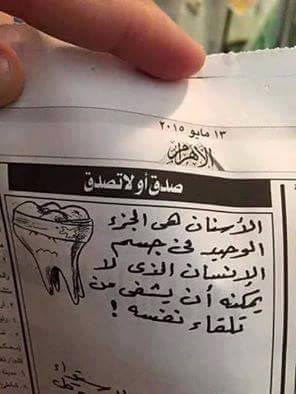 ١٣ مايو ٢٠١٥
الأهرام
صدق أو لا تصدق
الأسنان هى الجزء
الوحيد فى جسم
الإنسان الذى لا
يمكنه أن يشفى من
تلقاء نفسه !